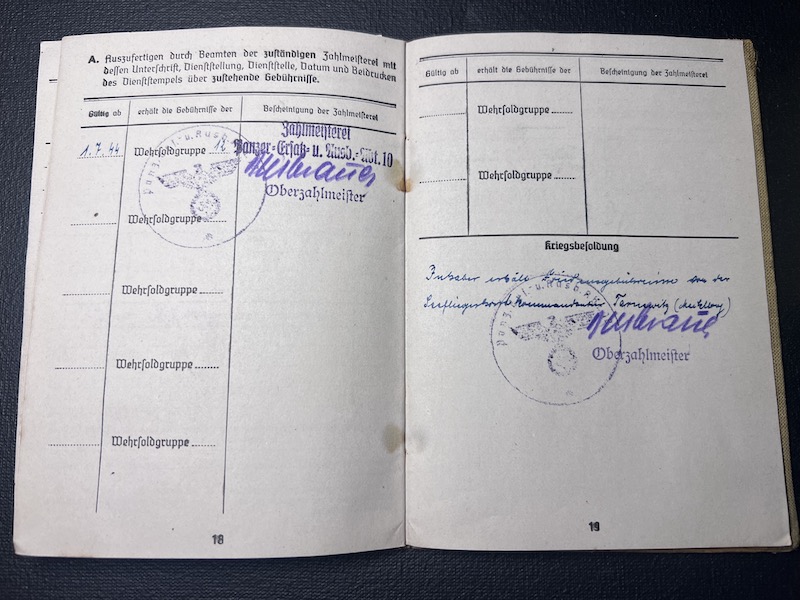 A. Auszufertigen durch Beamten der zuständigen Zahlmeisterei mit
dessen Unterschrift, Dienststellung, Dienststelle, Datum und Beidrucken
des Dienststempels über zustehende Gebührnisse.
Gültig ab
erhält die Gebührnisse der
Bescheinigung der Zahlmeisterei
1.7.44
Wehrsoldgruppe 12
Zahlmeisterei
Panzer-Ersatz- u. Ausb.-Abt. 10
Oberzahlmeister
Wehrsoldgruppe
Wehrsoldgruppe
Wehrsoldgruppe
Wehrsoldgruppe
18
Gültig ab
erhält die Gebührnisse der
Bescheinigung der Zahlmeisterei
Wehrsoldgruppe
Wehrsoldgruppe
Kriegsbesoldung
Inhaber erhält Friedensgebührnisse von der
Kommandantur
Oberzahlmeister
19